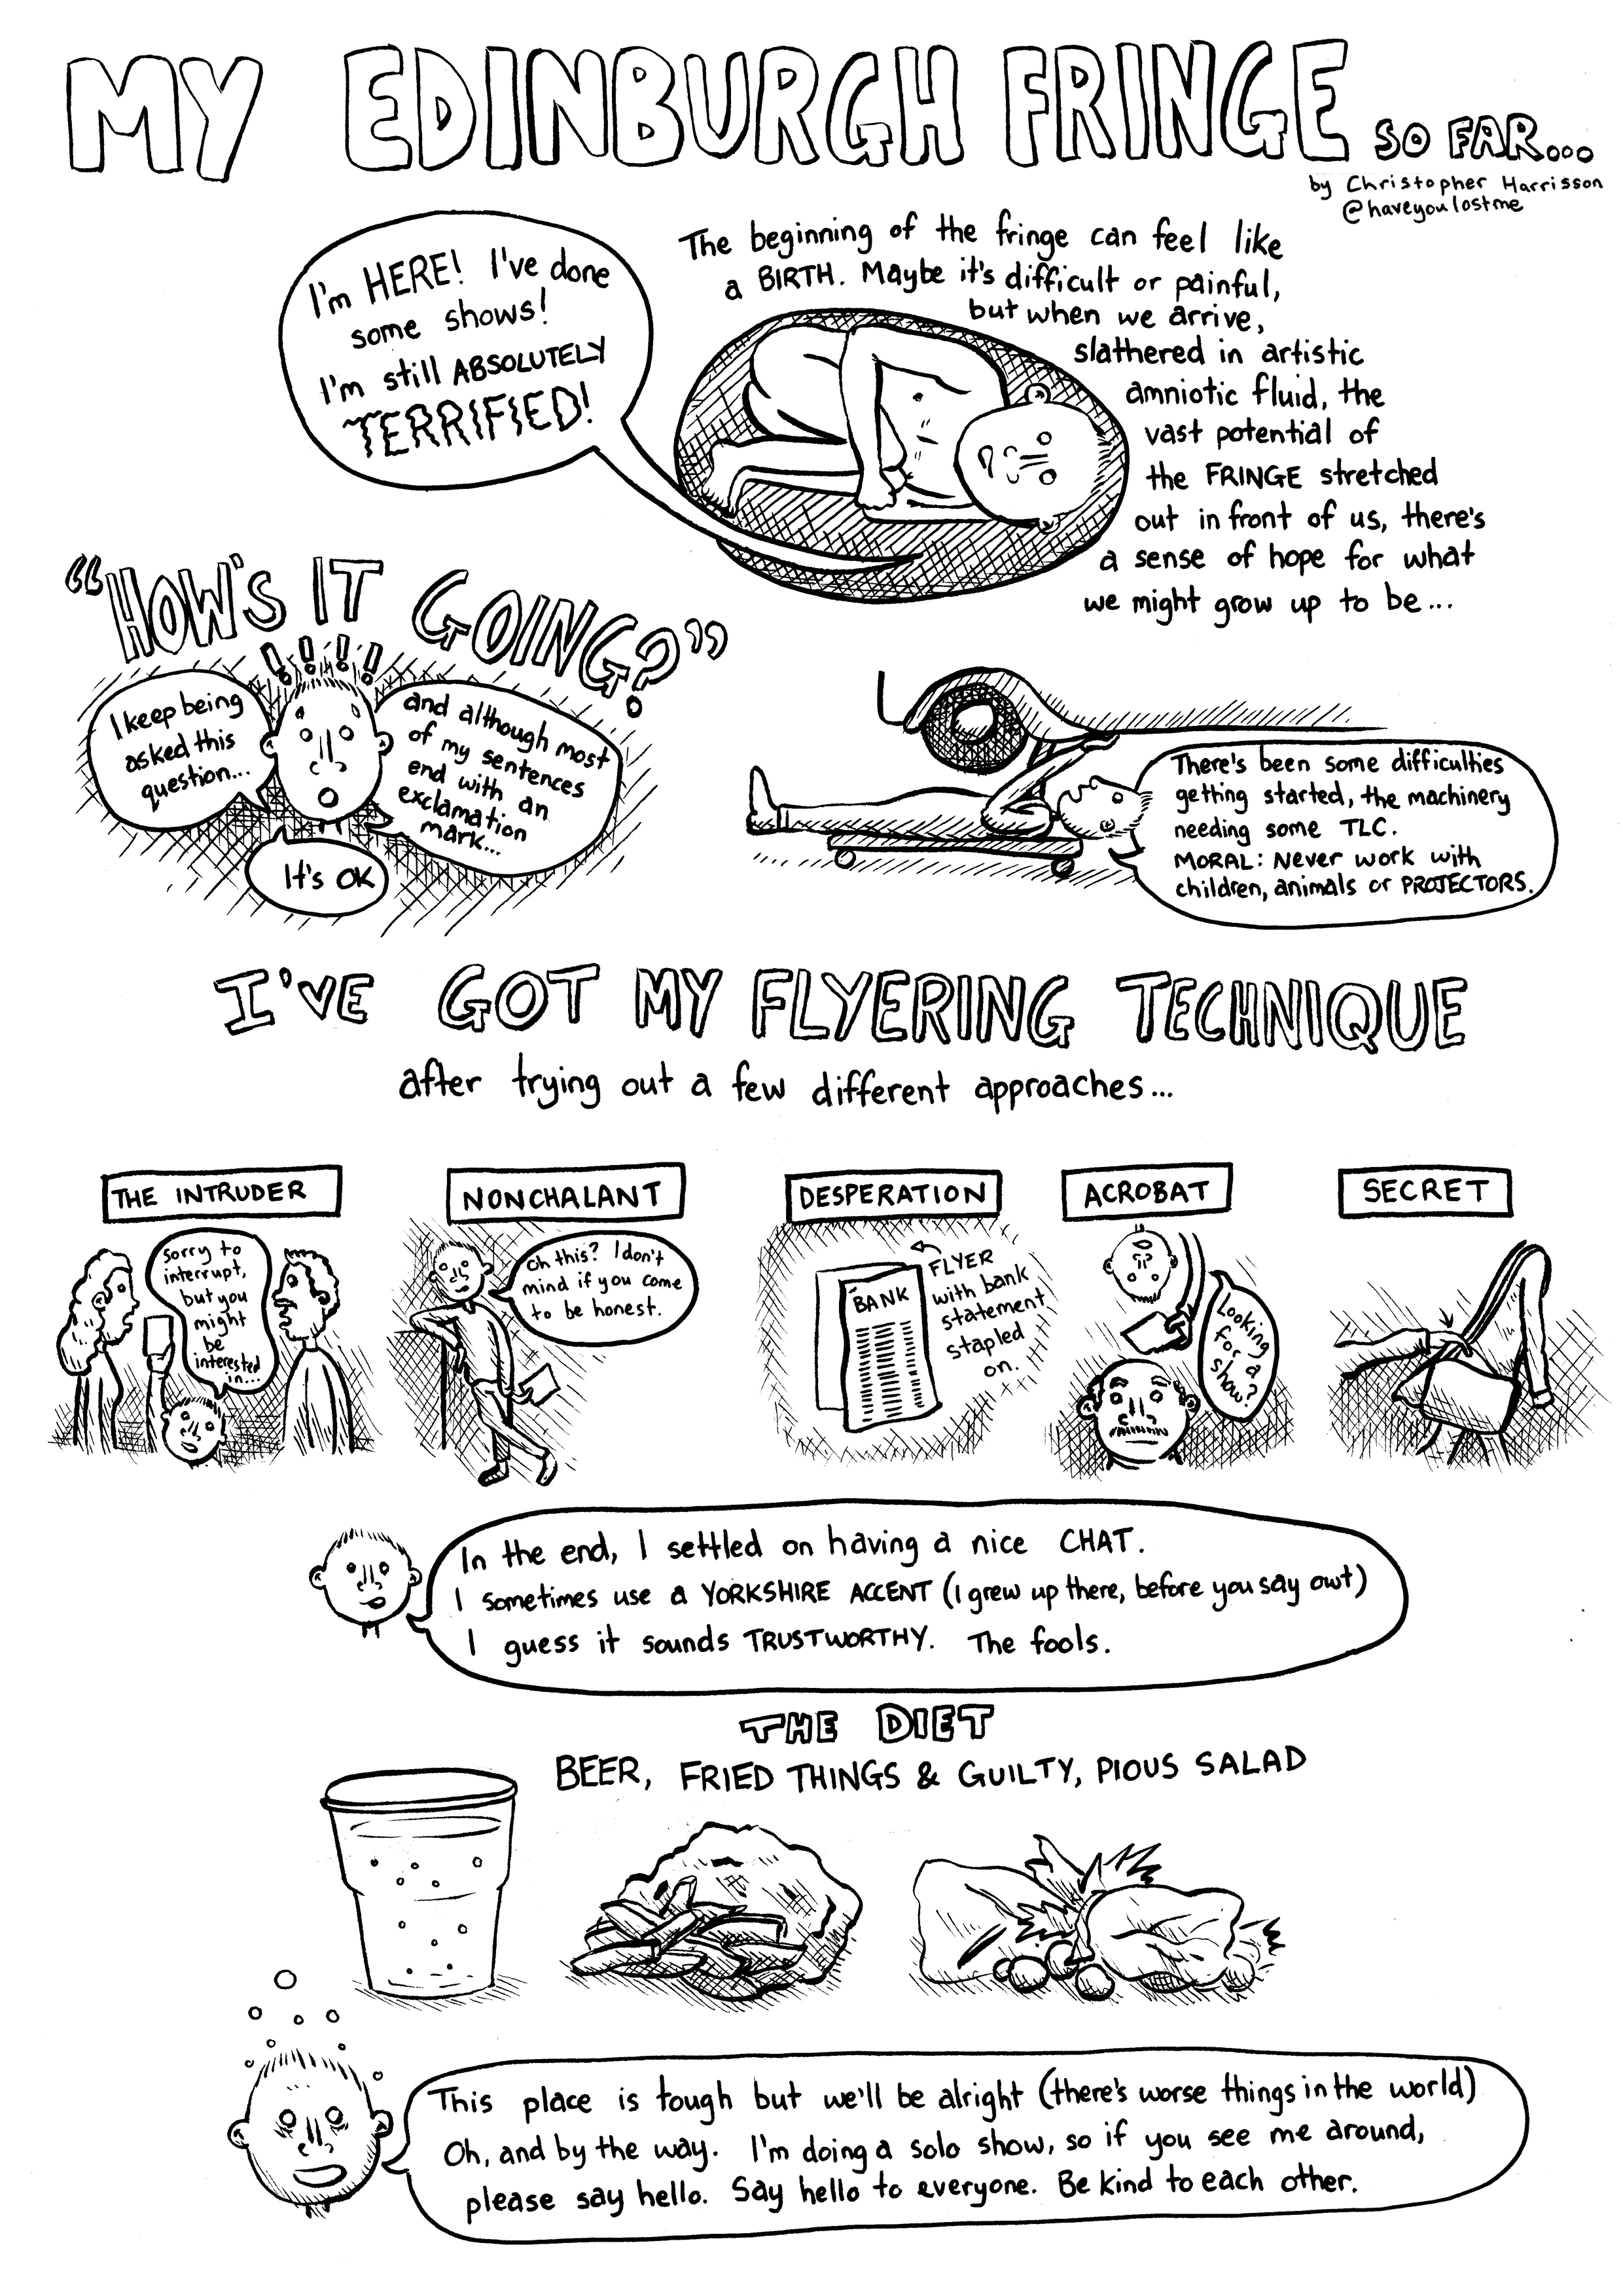 MY EDINBURGH FRINGE SO FAR...
by Christopher Harrisson
@haveyoulostme
I'm HERE! I've done
some shows!
I'm still ABSOLUTELY
TERRIFIED!
The beginning of the fringe can feel like
a BIRTH. Maybe it's difficult or painful,
but when we arrive,
slathered in artistic
amniotic fluid, the
vast potential of
the FRINGE stretched
out in front of us, there's
a sense of hope for what
we might grow up to be...
"HOW'S IT GOING?"
!!!!
I keep being
asked this
question...
and although most
of my sentences
end with an
exclamation
mark...
It's OK
There's been some difficulties
getting started, the machinery
needing some TLC.
MORAL: Never work with
children, animals or PROJECTORS.
I'VE GOT MY FLYERING TECHNIQUE
after trying out a few different approaches...
THE INTRUDER
Sorry to
interrupt,
but you
might
be
interested
in...
NONCHALANT
Oh this? I don't
mind if you come
to be honest.
DESPERATION
FLYER
with bank
statement
stapled
on.
BANK
ACROBAT
Looking
for a
show?
SECRET
In the end, I settled on having a nice CHAT.
I sometimes use a YORKSHIRE ACCENT (I grew up there, before you say owt)
I guess it sounds TRUSTWORTHY. The fools.
THE DIET
BEER, FRIED THINGS & GUILTY, PIOUS SALAD
This place is tough but we'll be alright (there's worse things in the world)
Oh, and by the way. I'm doing a solo show, so if you see me around,
please say hello. Say hello to everyone. Be kind to each other.